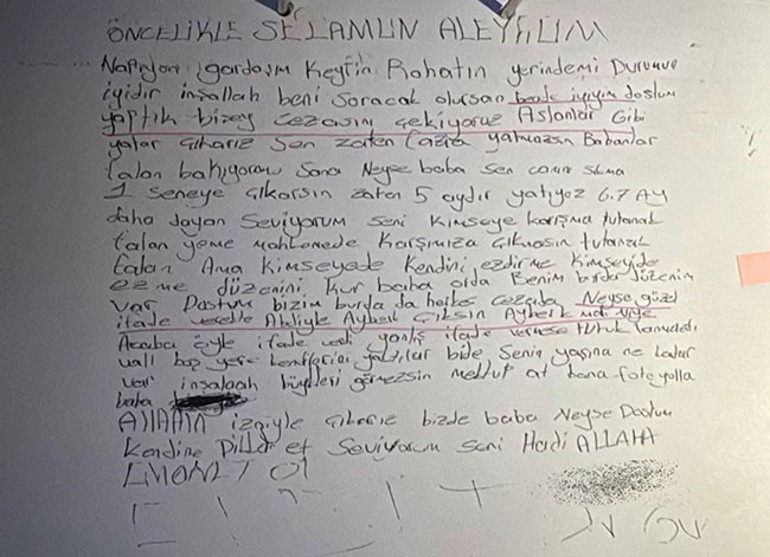 ÖNCELİKLE SELAMUN ALEYKÜM
Napıyon gardaşım Keyfin Rahatın yerindemi Durumun
iyidir inşallah beni Soracak olursan bende iyiyim dostum
yaptık bizey cezasını çekiyoruz Aslanlar Gibi
yatar çıkarız Sen zaten fazla yatmazsın Babanlar
falan bakıyorum Sana Neyse baba Sen canın sıkma
1 Seneye çıkarsın zaten 5 aydır yatıyoz 6.7 AY
daha dayan Seviyorum Seni Kimseye karışma tutanak
falan yeme Mahkemede Karşınıza çıkmasın tutanak
falan Ama Kimseyede Kendini ezdirme Kimseyide
ezme düzenini Kur baba orda Benim burda düzenim
var Dostum bizim burda da herkes Neyse güzel
ifade Abdiyle Ayberk Çıksın Ayberk niye
Acaba öyle ifade verdi yanlış ifade vermese
vall boş yere yaktılar bide Senin yaşına ne kadar
var inşalaah büyükleri görmezsin mektup at bana foto yolla
baba
ALLAHIN izniyle çıkarız bizde baba Neyse Dostum
Kendine Dikkat et Seviyorum Seni Hadi ALLAHA
EMONET Ol